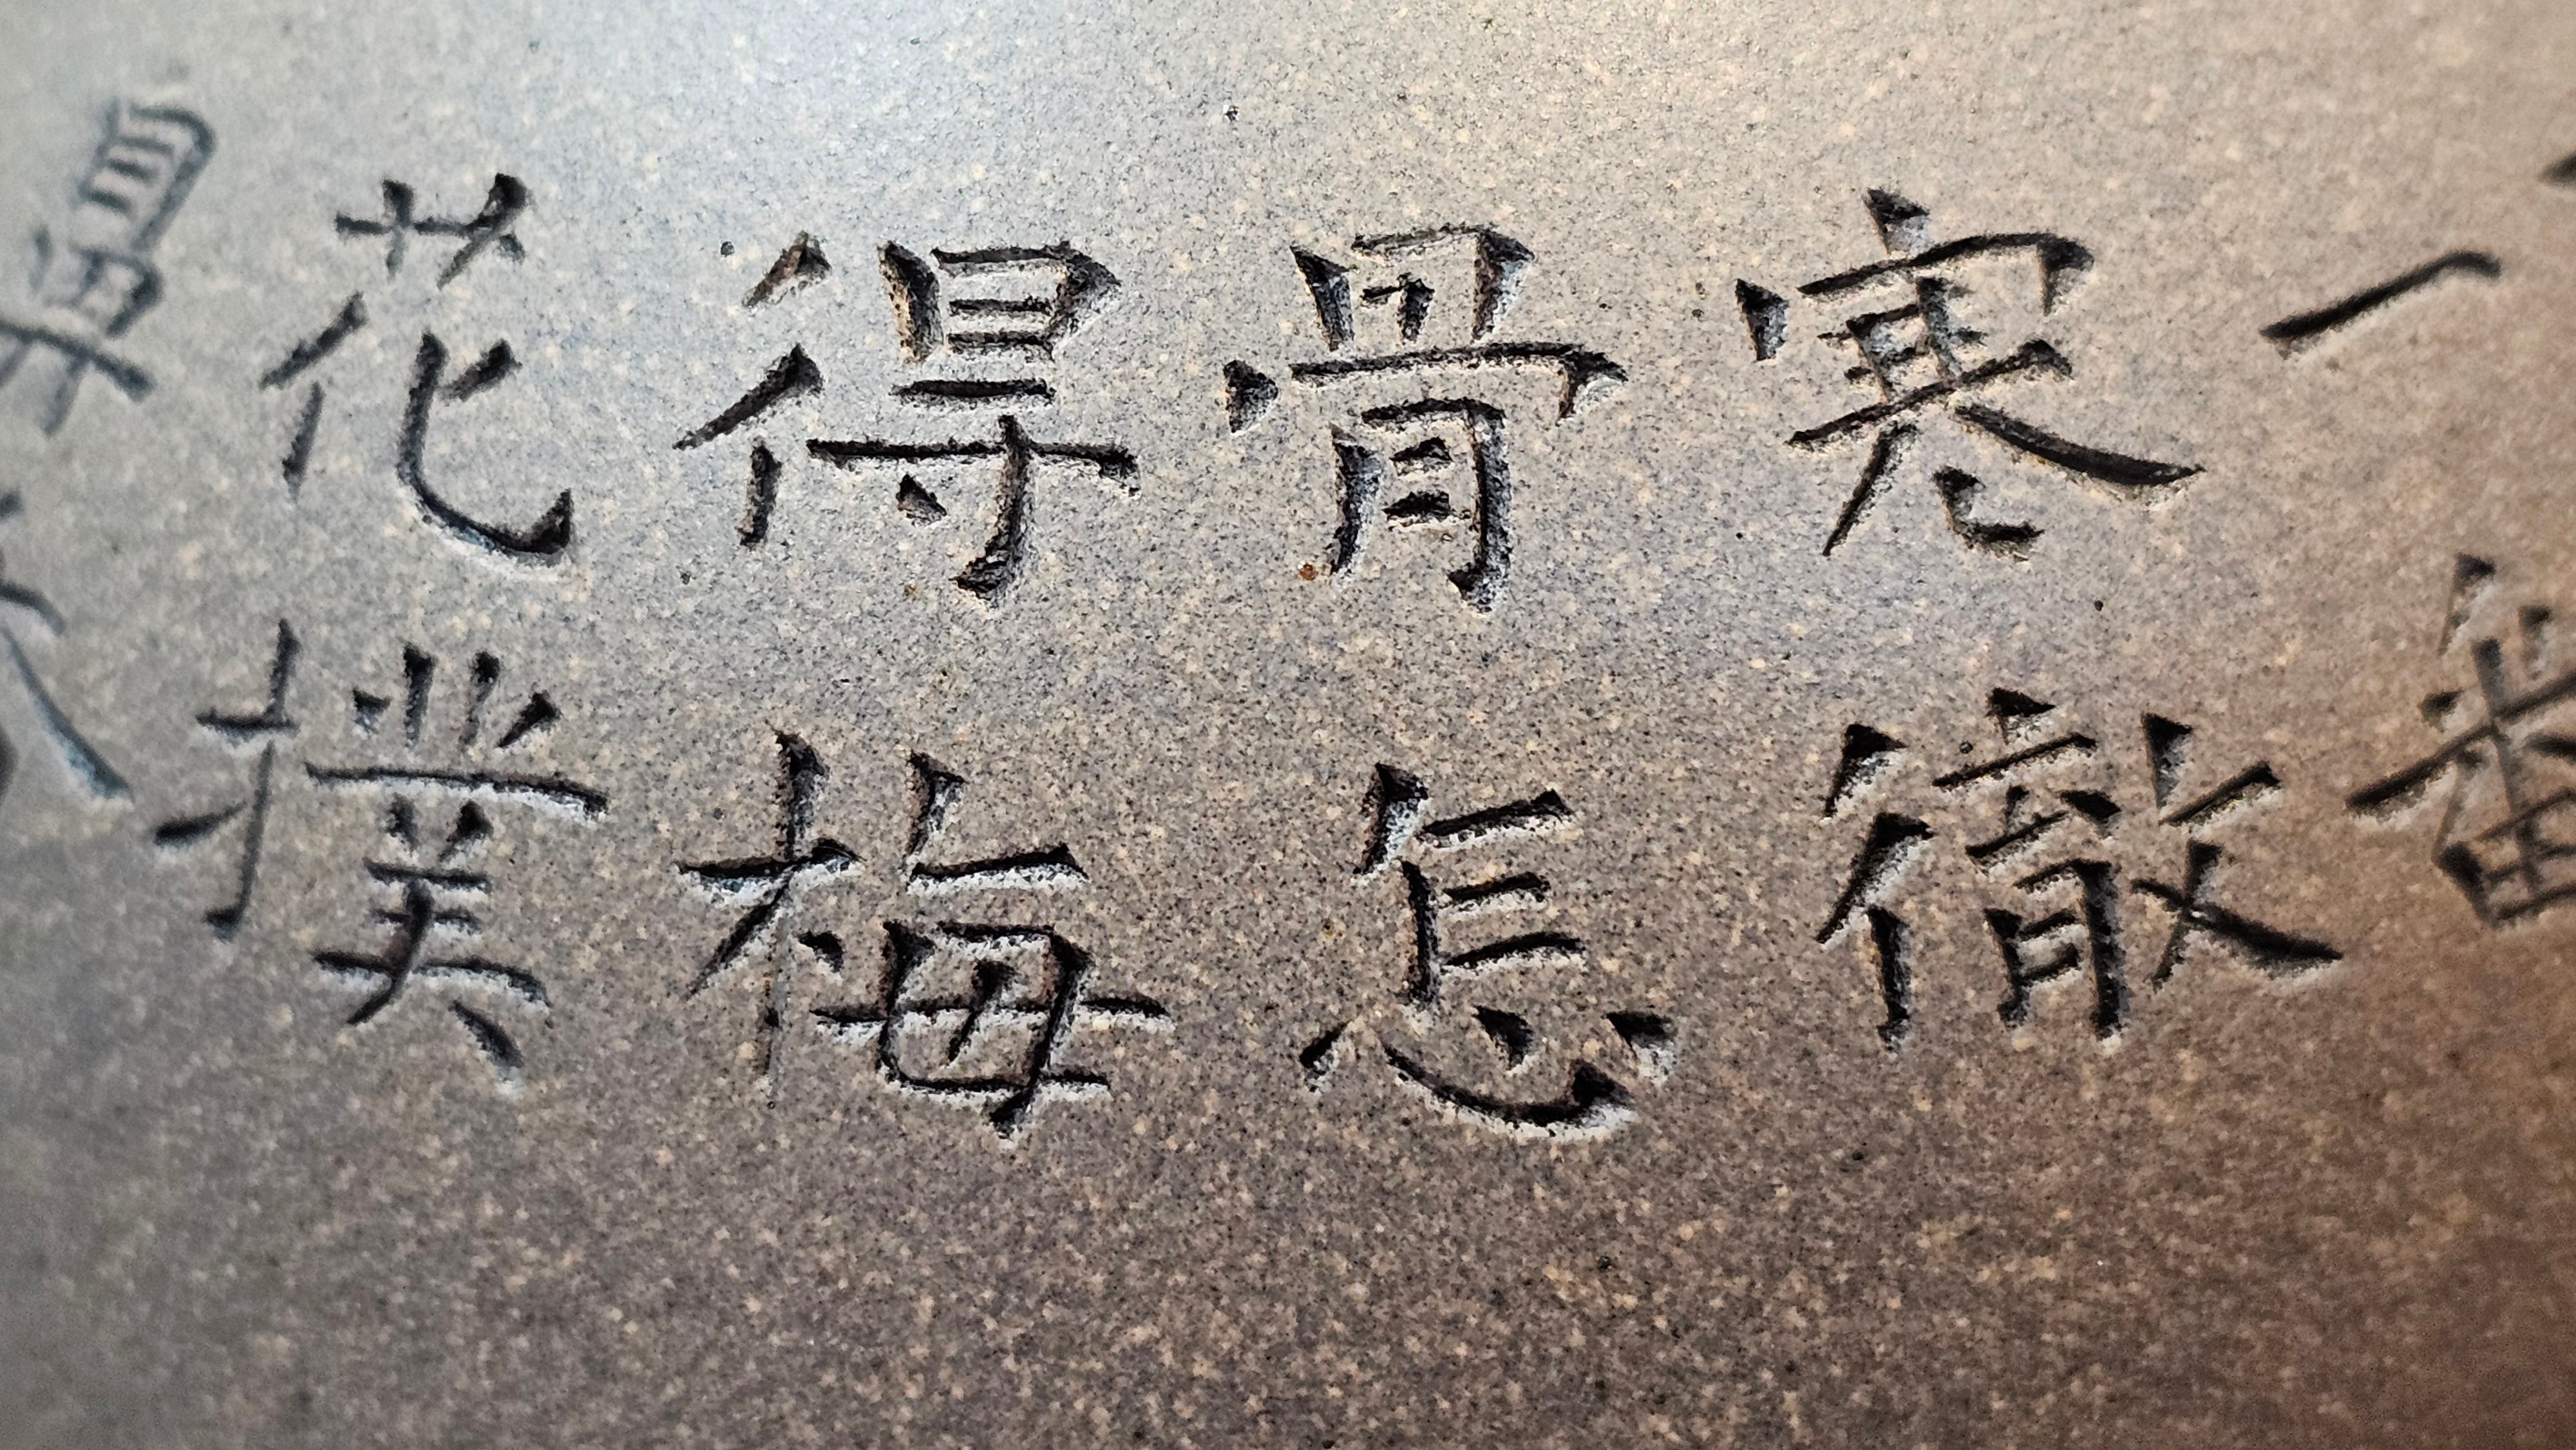 一番
寒徹
骨怎
得梅
花撲
鼻